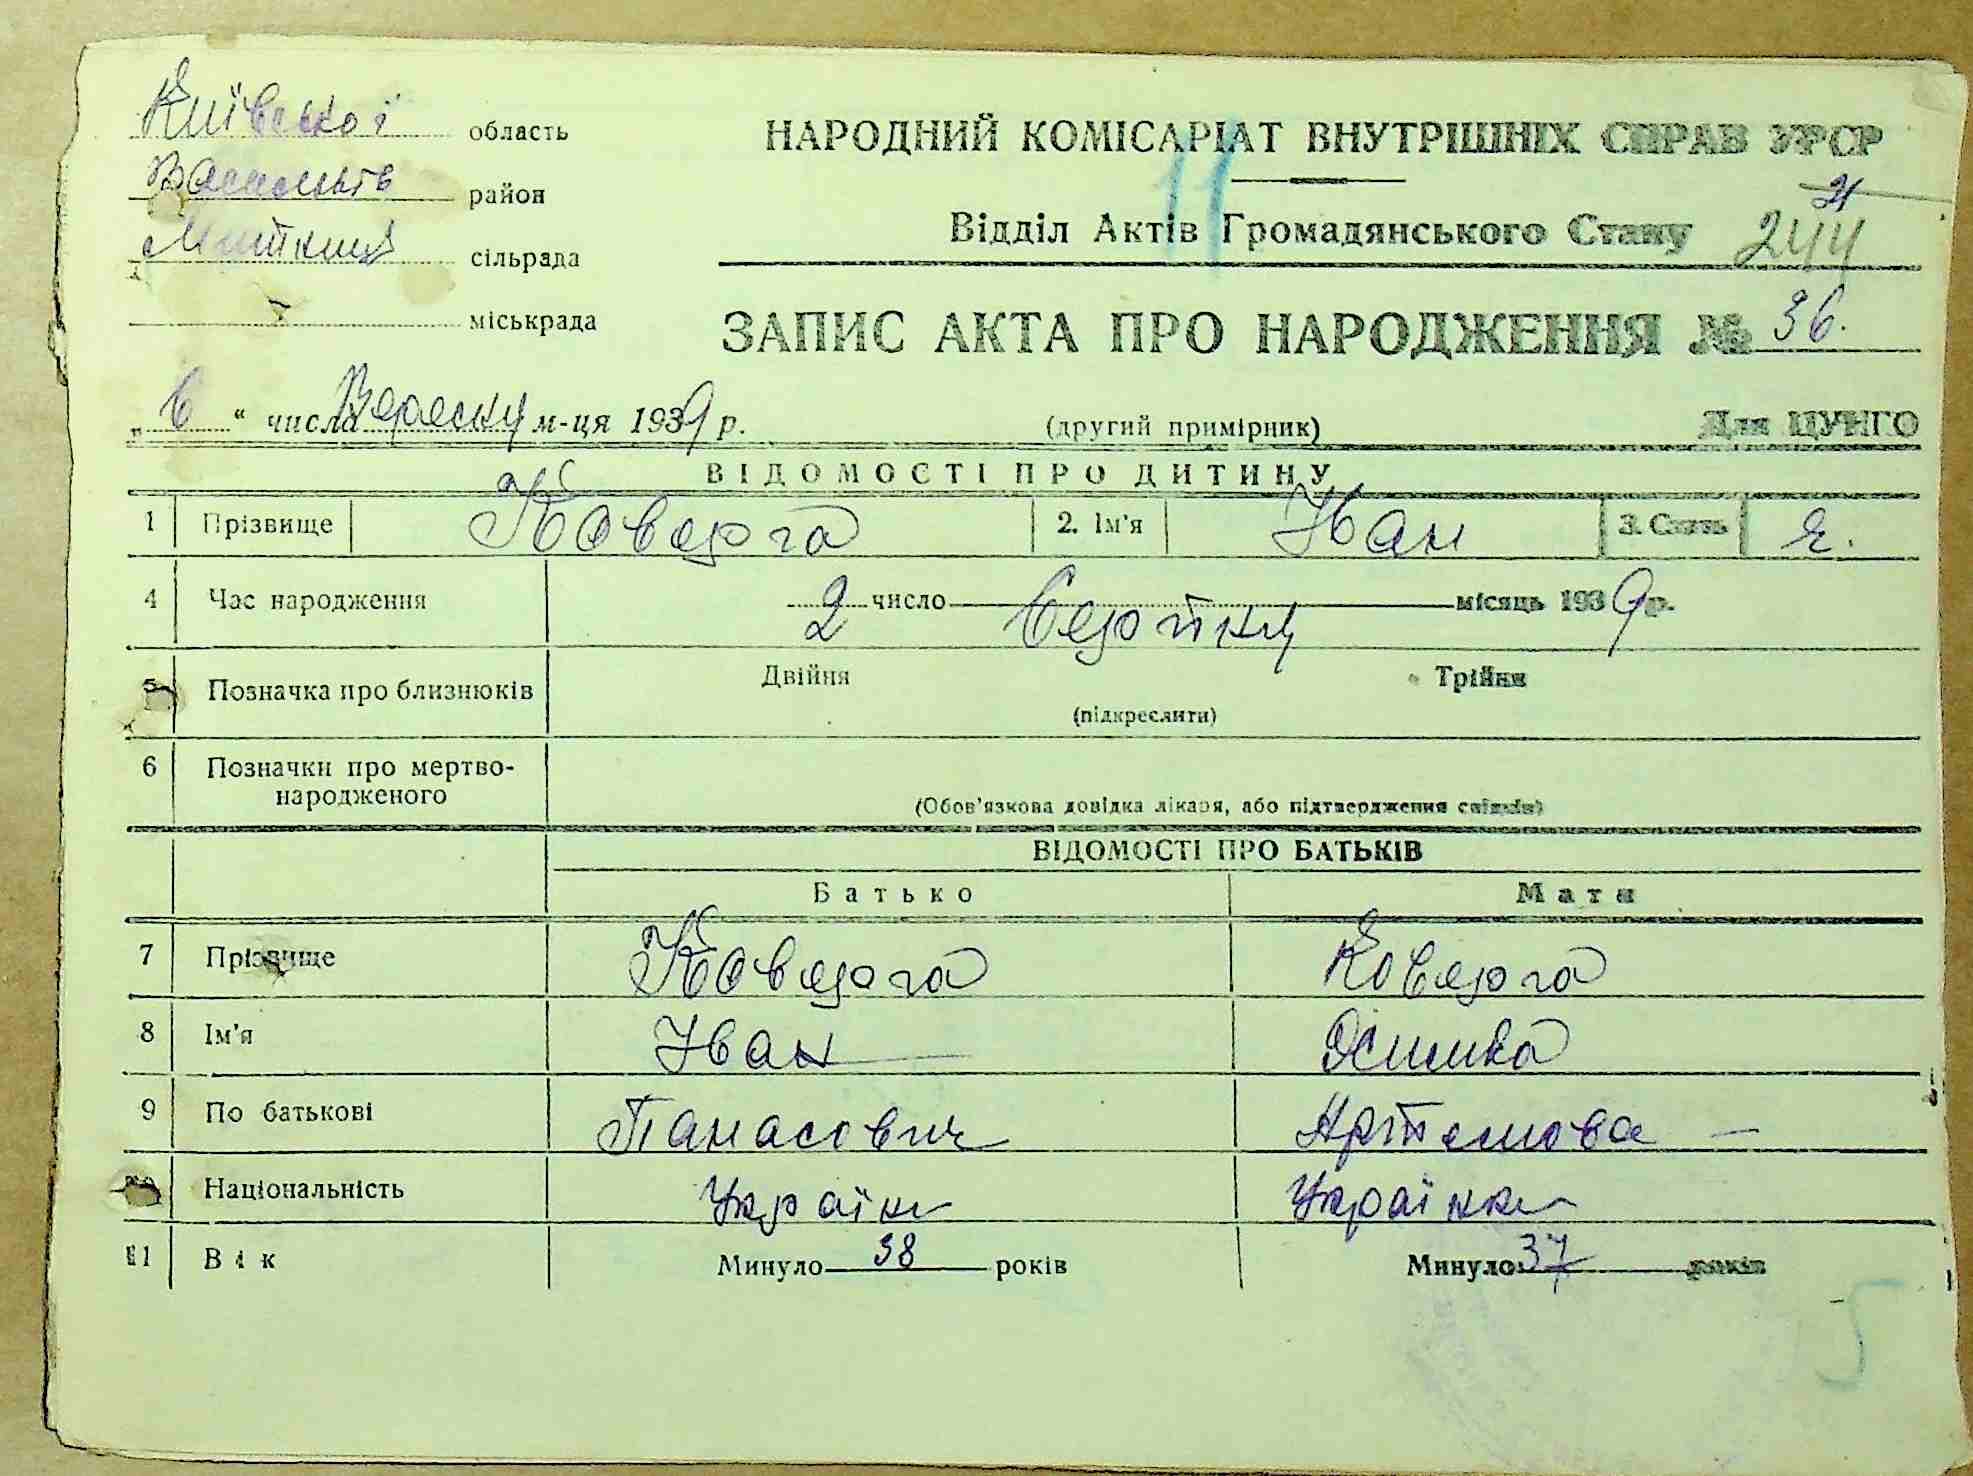 Київської область
НАРОДНИЙ КОМІСАРІАТ ВНУТРІШНІХ СПРАВ УРСР
район
11
Відділ Актів Громадянського Стану 244
сільрада
міськрада
ЗАПИС АКТА ПРО НАРОДЖЕННЯ № 36.
„6“ числа Вересня м-ця 1939 р. (другий примірник) Для ЦУНГО
ВІДОМОСТІ ПРО ДИТИНУ
1 Прізвище Коверга 2. Ім'я Іван 3. Стать ч.
4 Час народження 2 число Серпня місяць 1939 р.
5 Позначка про близнюків Двійня Трійня
(підкреслити)
6 Позначки про мертво-
народженого
(Обов'язкова довідка лікаря, або підтвердження свідків)
ВІДОМОСТІ ПРО БАТЬКІВ
Батько Мати
7 Прізвище Коверга Коверга
8 Ім'я Іван
9 По батькові Панасович Артемова
10 Національність Україн Українка
11 Вік Минуло 38 років Минуло 37 років
5